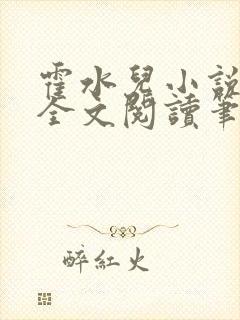 霍水兒小說
全文閱讀筆
醉紅火